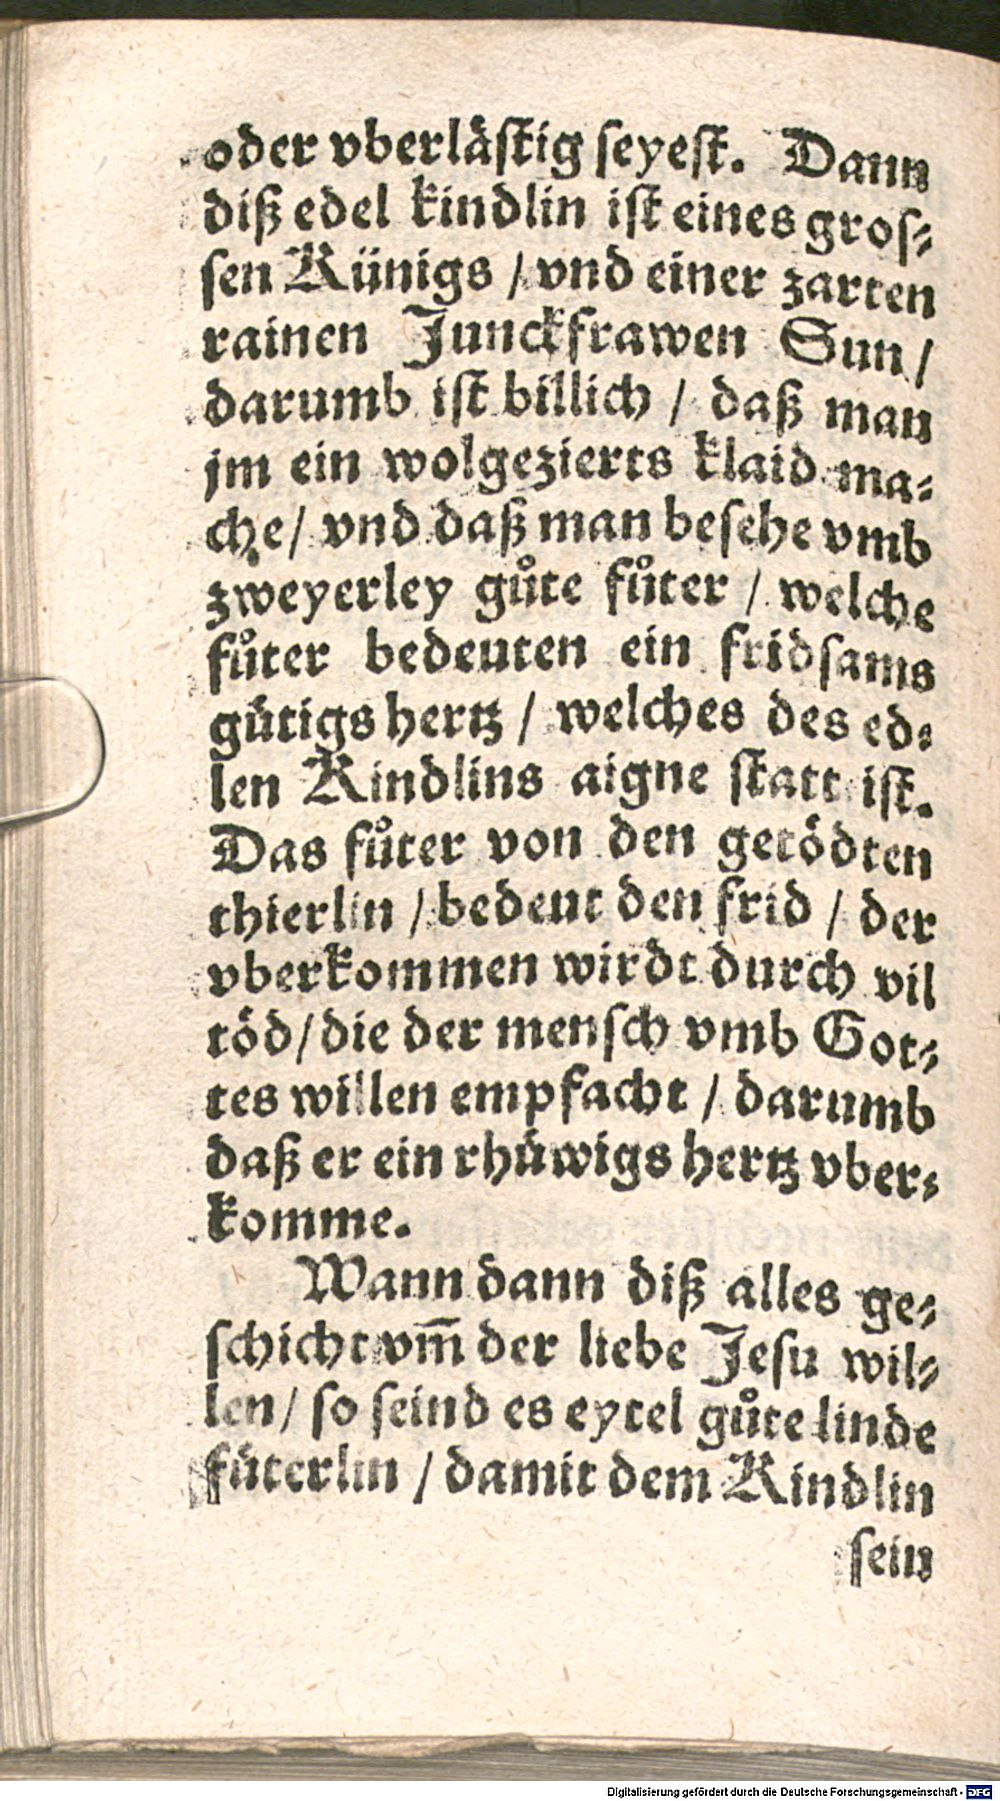 oder vberlästig seyest. Dann
diß edel kindlin ist eines gros⸗
sen Künigs / vnd einer zarten
rainen Junckfrawen Sun /
darumb ist billich / daß man
jm ein wolgezierts klaid ma⸗
che / vnd daß man besehe vmb
zweyerley gůte fůter / welche
fůter bedeuten ein fridsams
gütigs hertz / welches des ed⸗
len Kindlins aigne statt ist.
Das fůter von den getödten
thierlin / bedeut den frid / der
vberkommen wirdt durch vil
töd / die der mensch vmb Got⸗
tes willen empfacht / darumb
daß er ein rhüwigs hertz vber⸗
komme.
Wann dann diß alles ge⸗
schicht vm̅ der liebe Jesu wil⸗
len / so seind es eytel gůte linde
füterlin / damit dem Kindlin
sein
Digitalisierung gefördert durch die Deutsche Forschungsgemeinschaft - DFG